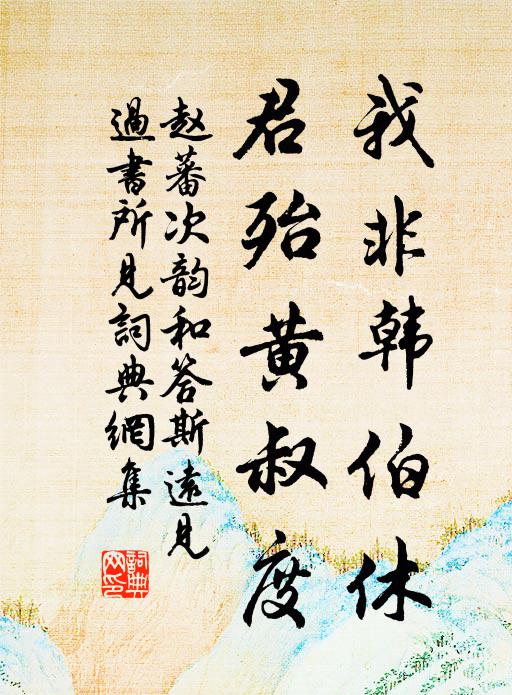 我非韩伯休
君殆黄叔度
赵蕃次韵和答斯远见
過書所見詞典網集
詞典網印